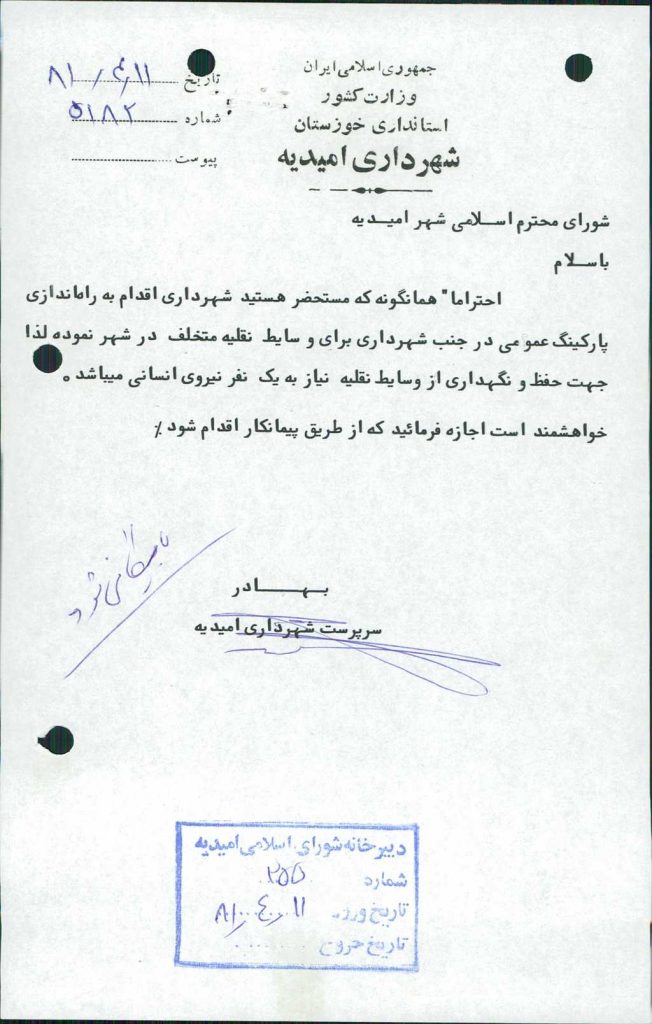 جمهوری اسلامی ایران
وزارت کشور
استانداری خوزستان
شهرداری امیدیه
تاریخ ۸۱/۴/۱۱
شماره ۵۱۸۲
پیوست
شورای محترم اسلامی شهر امیدیه
باسلام
احتراما" همانگونه که مستحضر هستید شهرداری اقدام به راه‌اندازی
پارکینگ عمومی در جنب شهرداری برای وسایط نقلیه متخلف در شهر نموده لذا
جهت حفظ و نگهداری از وسایط نقلیه نیاز به یک نفر نیروی انسانی میباشد .
خواهشمند است اجازه فرمائید که از طریق پیمانکار اقدام شود ٪
بهادر
سرپرست شهرداری امیدیه
بایگانی شود
دبیرخانه شورای اسلامی امیدیه
شماره ۲۵۵
تاریخ ورود ۸۱/۴/۱۱
تاریخ خروج